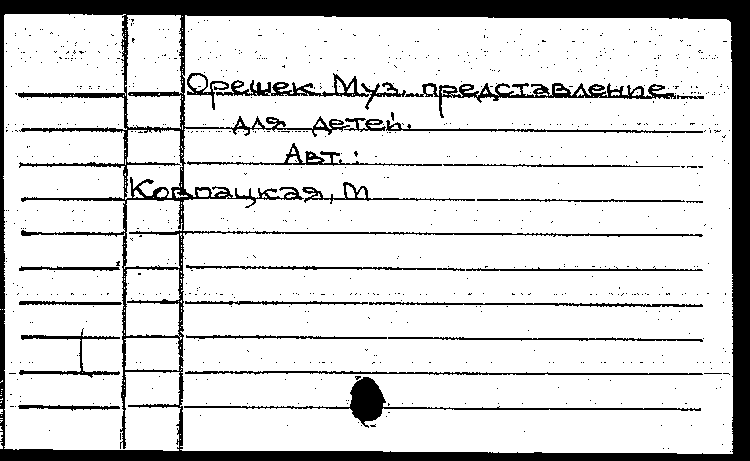 Орешек. Муз. представление
для детей.
Авт.:
Ковпацкая, М